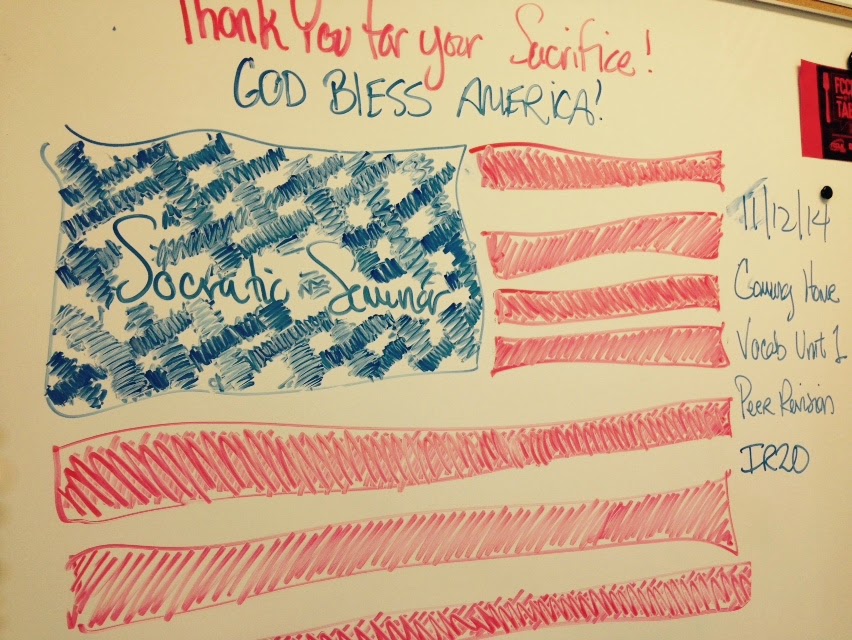 Thank You for your Sacrifice!
GOD BLESS AMERICA!
Socratic Seminar
11/12/14
Coming Home
Vocab Unit 1
Peer Revision
IR20